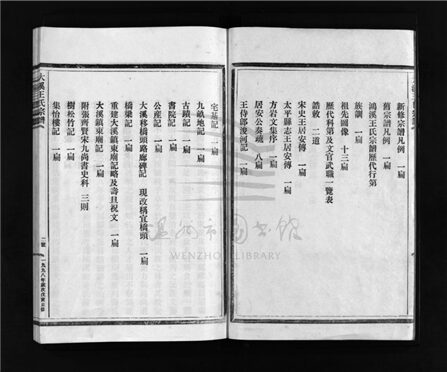 新修宗譜凡例 一扁
舊宗譜凡例 一扁
鴻溪王氏宗譜歷代行第
族調 一扁
祖先圖像 十三扁
歷代科第及文官武職一覽表
誥敕 二道
宋史王居安傳 一扁
太平縣志王居安傳 一扁
方岩文集序 一扁
居安公奏疏 八扁
王侍郎浚河記 一扁
宅基記 一扁
九畝地記 一扁
古蹟記 一扁
書院記 一扁
公產記 一扁
大溪移橋頭路廊碑記 現改稱宜橋頭 一扁
橋梁記 一扁
重建大溪鎮東廟記略及壽旦祝文 一扁
大溪鎮東廟記 一扁
附張齊賢宋九尚書史科 三則
樹松竹記 一扁
集怡樓記 一扁
大溪王氏宗譜
一號
一九九八年歲次戊寅重修
溫州市圖書館
WENZHOU LIBRARY